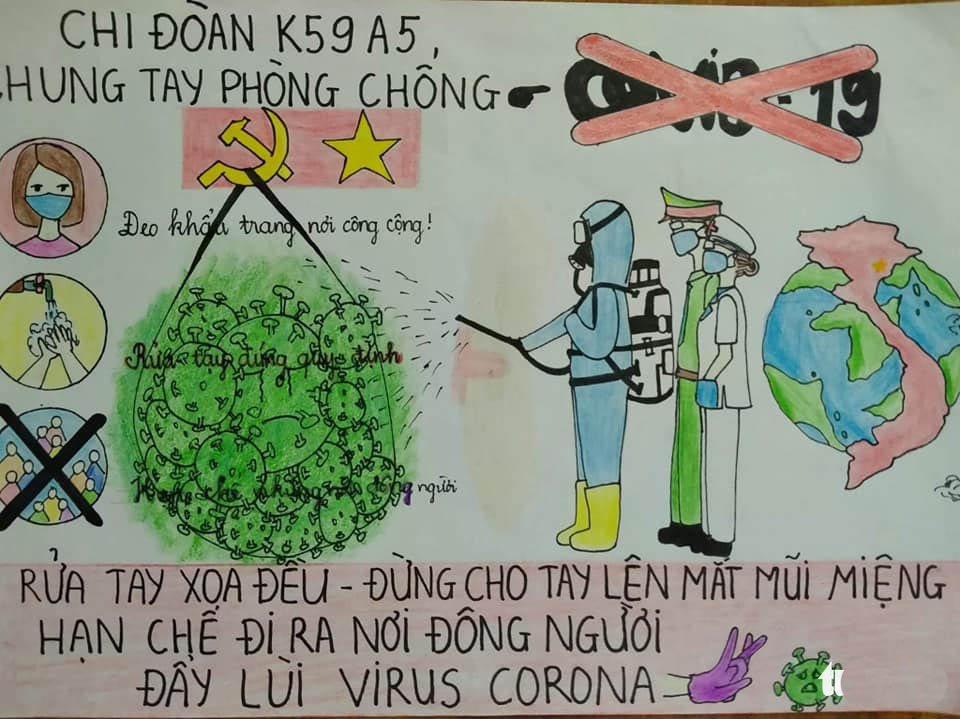 CHI ĐOÀN K59 A5,
CHUNG TAY PHÒNG CHỐNG COVID-19
Đeo khẩu trang nơi công cộng!
Rửa tay đúng quy định
Hạn chế những nơi đông người
RỬA TAY XỌA ĐỀU - ĐỪNG CHO TAY LÊN MẮT MŨI MIỆNG
HẠN CHẾ ĐI RA NƠI ĐÔNG NGƯỜI
ĐẨY LÙI VIRUS CORONA